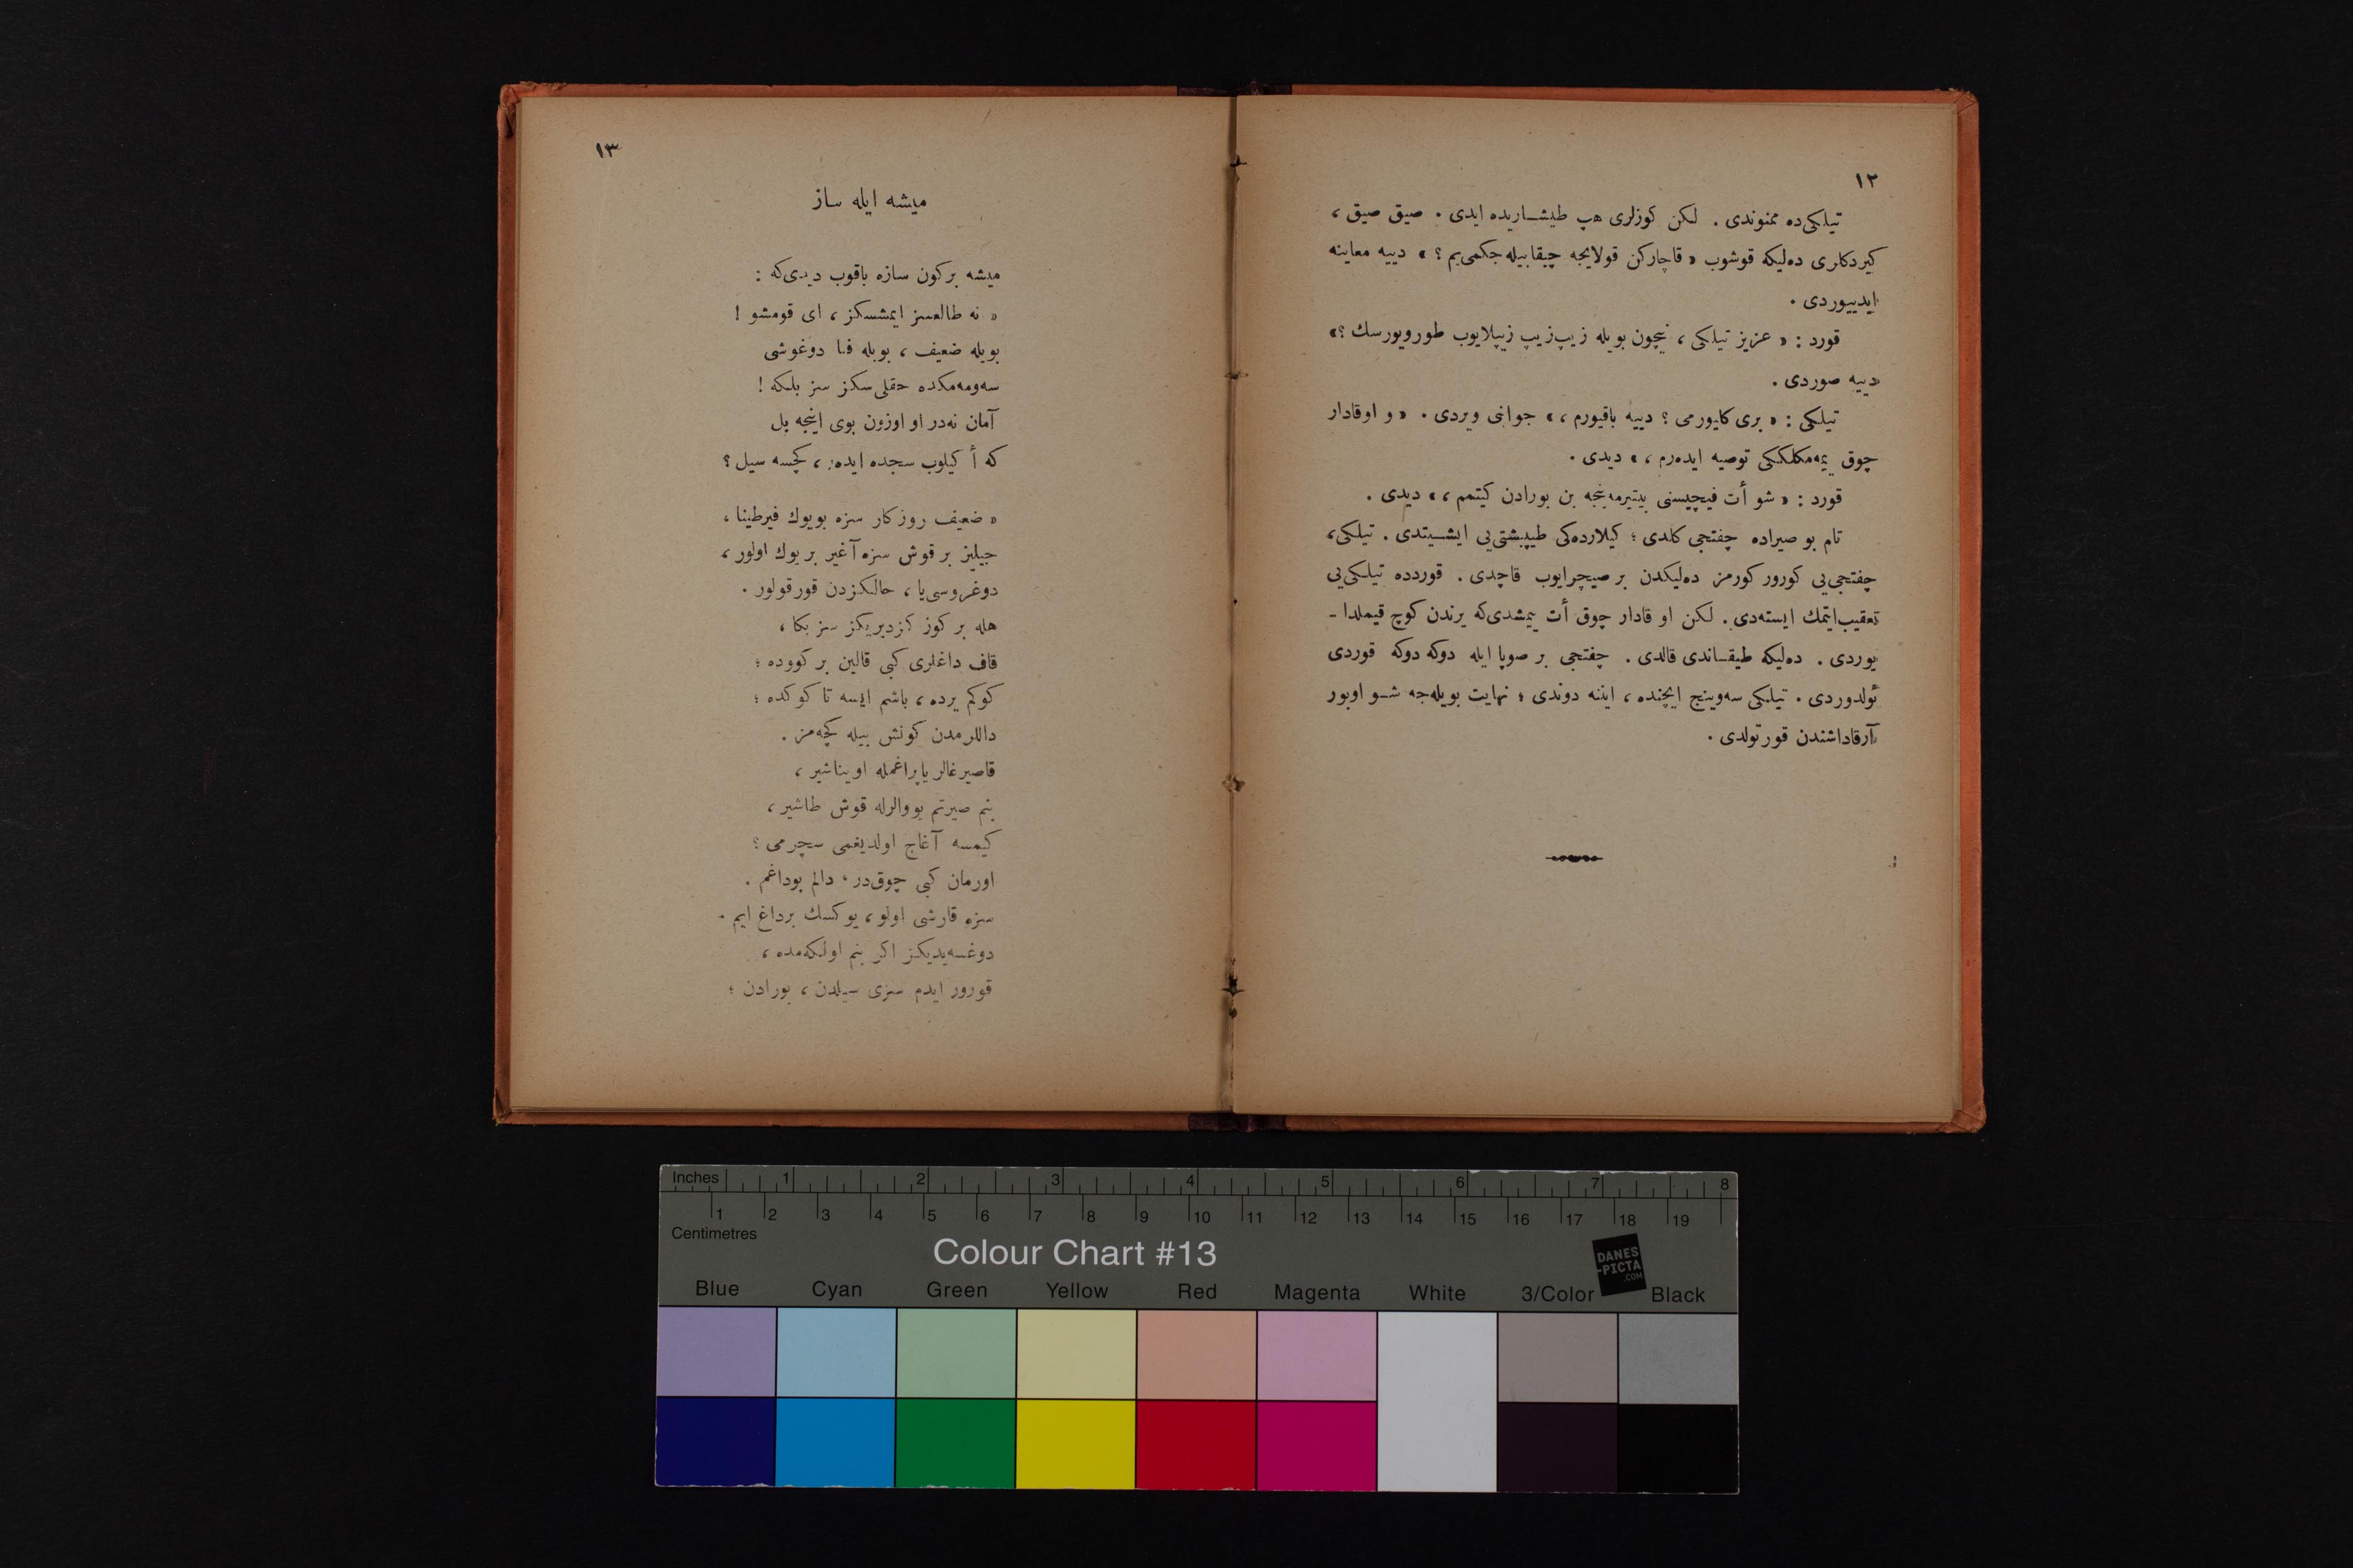 ١٢
تيلكی‌ده ممنوندی . لكن كوزلری هپ طيشـاريده ايدی . صيق صيق ،
كيردكلری ده‌ليكه قوشوب « قاچاركن قولايجه چيقابيله‌جكمی‌يم ؟ » دييه معاينه
ايدييوردی .
قورد : « عزيز تيلكی ، نيچون بويله زيپ‌زيپ زيپلايوب طورويورسك ؟»
دييه صوردی .
تيلكی : « بری كليورمی ؟ دييه باقيورم ، » جوابنی ويردی . « و اوقادار
چوق ييمه‌مكلككی توصيه ايده‌رم ، » ديدی .
قورد : « شو أت فيچيسنی بيتيرمه‌ينجه بن بورادن كيتمم ، » ديدی .
تام بو صيراده چفتجی كلدی ؛ كيلارده‌كی طيپيشتی‌يی ايشـيتدی . تيلكی ،
چفتجی‌يی كورور كورمز ده‌ليكدن بر صيچرايوب قاچدی . قوردده تيلكی‌يی
تعقيب‌ايتمك ايسته‌دی . لكن او قادار چوق أت ييمشدی‌كه يرندن كوچ قيملدا ـ
يوردی . ده‌ليكه طيقـاندی قالدی . چفتجی بر صوپا ايله دوكه دوكه قوردی
ئولدوردی . تيلكی سه‌وينج ايچنده ، ايننه دوندی ؛ نهايت بويله‌جه شـو اوبور
آرقاداشندن قورتولدی .
١٣
ميشه ايله ساز
ميشه بر كون سازه باقوب ديدی‌كه :
« نه طالعسز ايمشسكز ، ای قومشو !
بويله ضعيف ، بويله فنا دوغوشی
سه‌ومه‌مكده حقلی سكز سز بلكه !
آمان نه‌در او اوزون بوی اينجه بل
كه أكيلوب سجده ايده‌ر ، كچسه سيل ؟
« ضعيف روزكار سزه بويوك فيرطينا ،
جيليز بر قوش سزه آغير بر يوك اولور ،
دوغروسی‌يا ، حالكزدن قورقولور .
هله بر كوز كزديريكز سز بكا ،
قاف داغلری كبی قالين بر كووده ؛
كوكم يرده ، باشم ايسه تا كوكده ؛
داللرمدن كونش بيله كچه‌مز .
قاصيرغالر ياپراغمله اويناشير ،
بنم صيرتم يووالرله قوش طاشير ،
كيمسه آغاج اولديغمی سچرمی ؟
اورمان كبی چوق‌در ، دالم بوداغم .
سزه قارشی اولو ، يوكسك برداغ ايم .
دوغسه‌يديكز اكر بنم اولكه‌مده ،
قورور ايدم سزی سيلدن ، بورادن ؛
Inches 1 2 3 4 5 6 7 8
1 2 3 4 5 6 7 8 9 10 11 12 13 14 15 16 17 18 19
Centimetres
Colour Chart #13
DANES
-PICTA
.COM
Blue Cyan Green Yellow Red Magenta White 3/Color Black